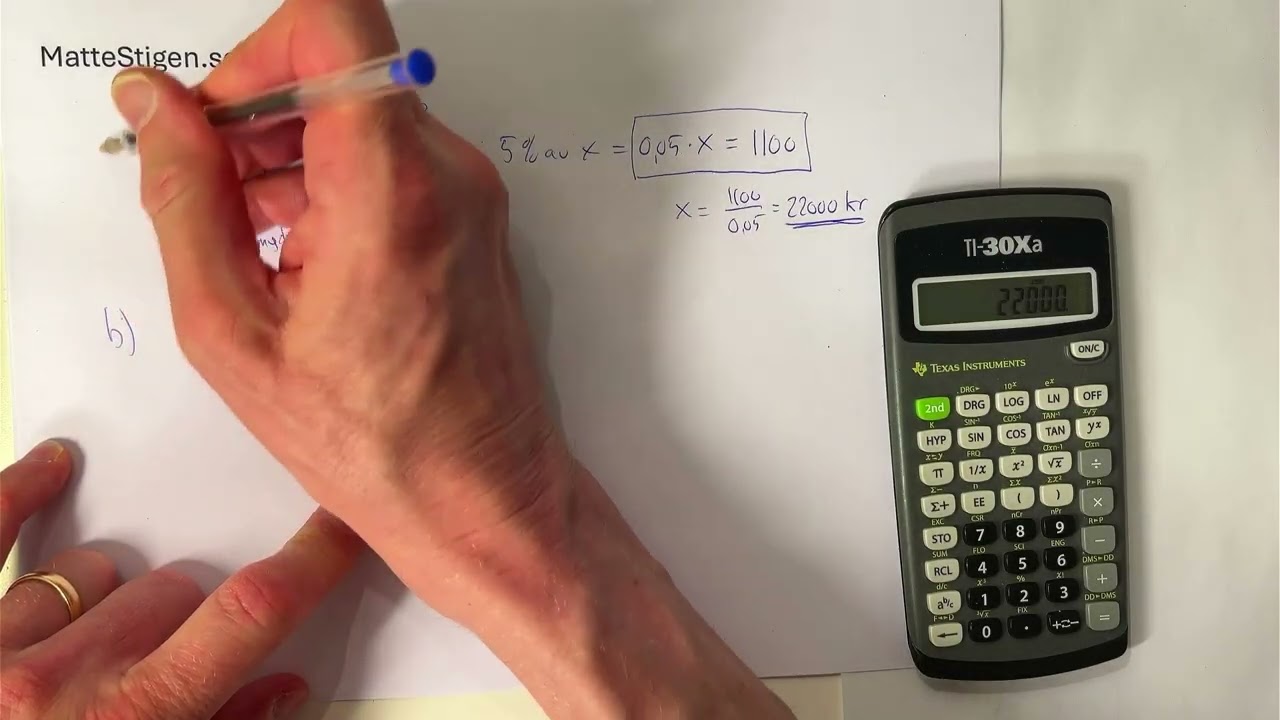 MatteStigen.se
5 % av x = 0,05 · x = 1100
x = 1100 / 0,05 = 22000 kr
b)
TI-30Xa
22000.
TEXAS INSTRUMENTS
ON/C
DRG► 10ˣ eˣ
2nd DRG LOG LN OFF
K SIN⁻¹ COS⁻¹ TAN⁻¹ ˣ√y
HYP SIN COS TAN yˣ
x⇄y FRQ x̄ σxn-1 σxn
π 1/x x² √x ÷
Σ- n Σx Σx² P►R
Σ+ EE ( ) ×
EXC CSR nCr nPr R►P
STO 7 8 9 −
SUM FLO SCI ENG DMS►DD
RCL 4 5 6 +
d/c x³ % x! DD►DMS
aᵇ/c 1 2 3 =
F◄►D ³√x FIX
← 0 . +⇄−